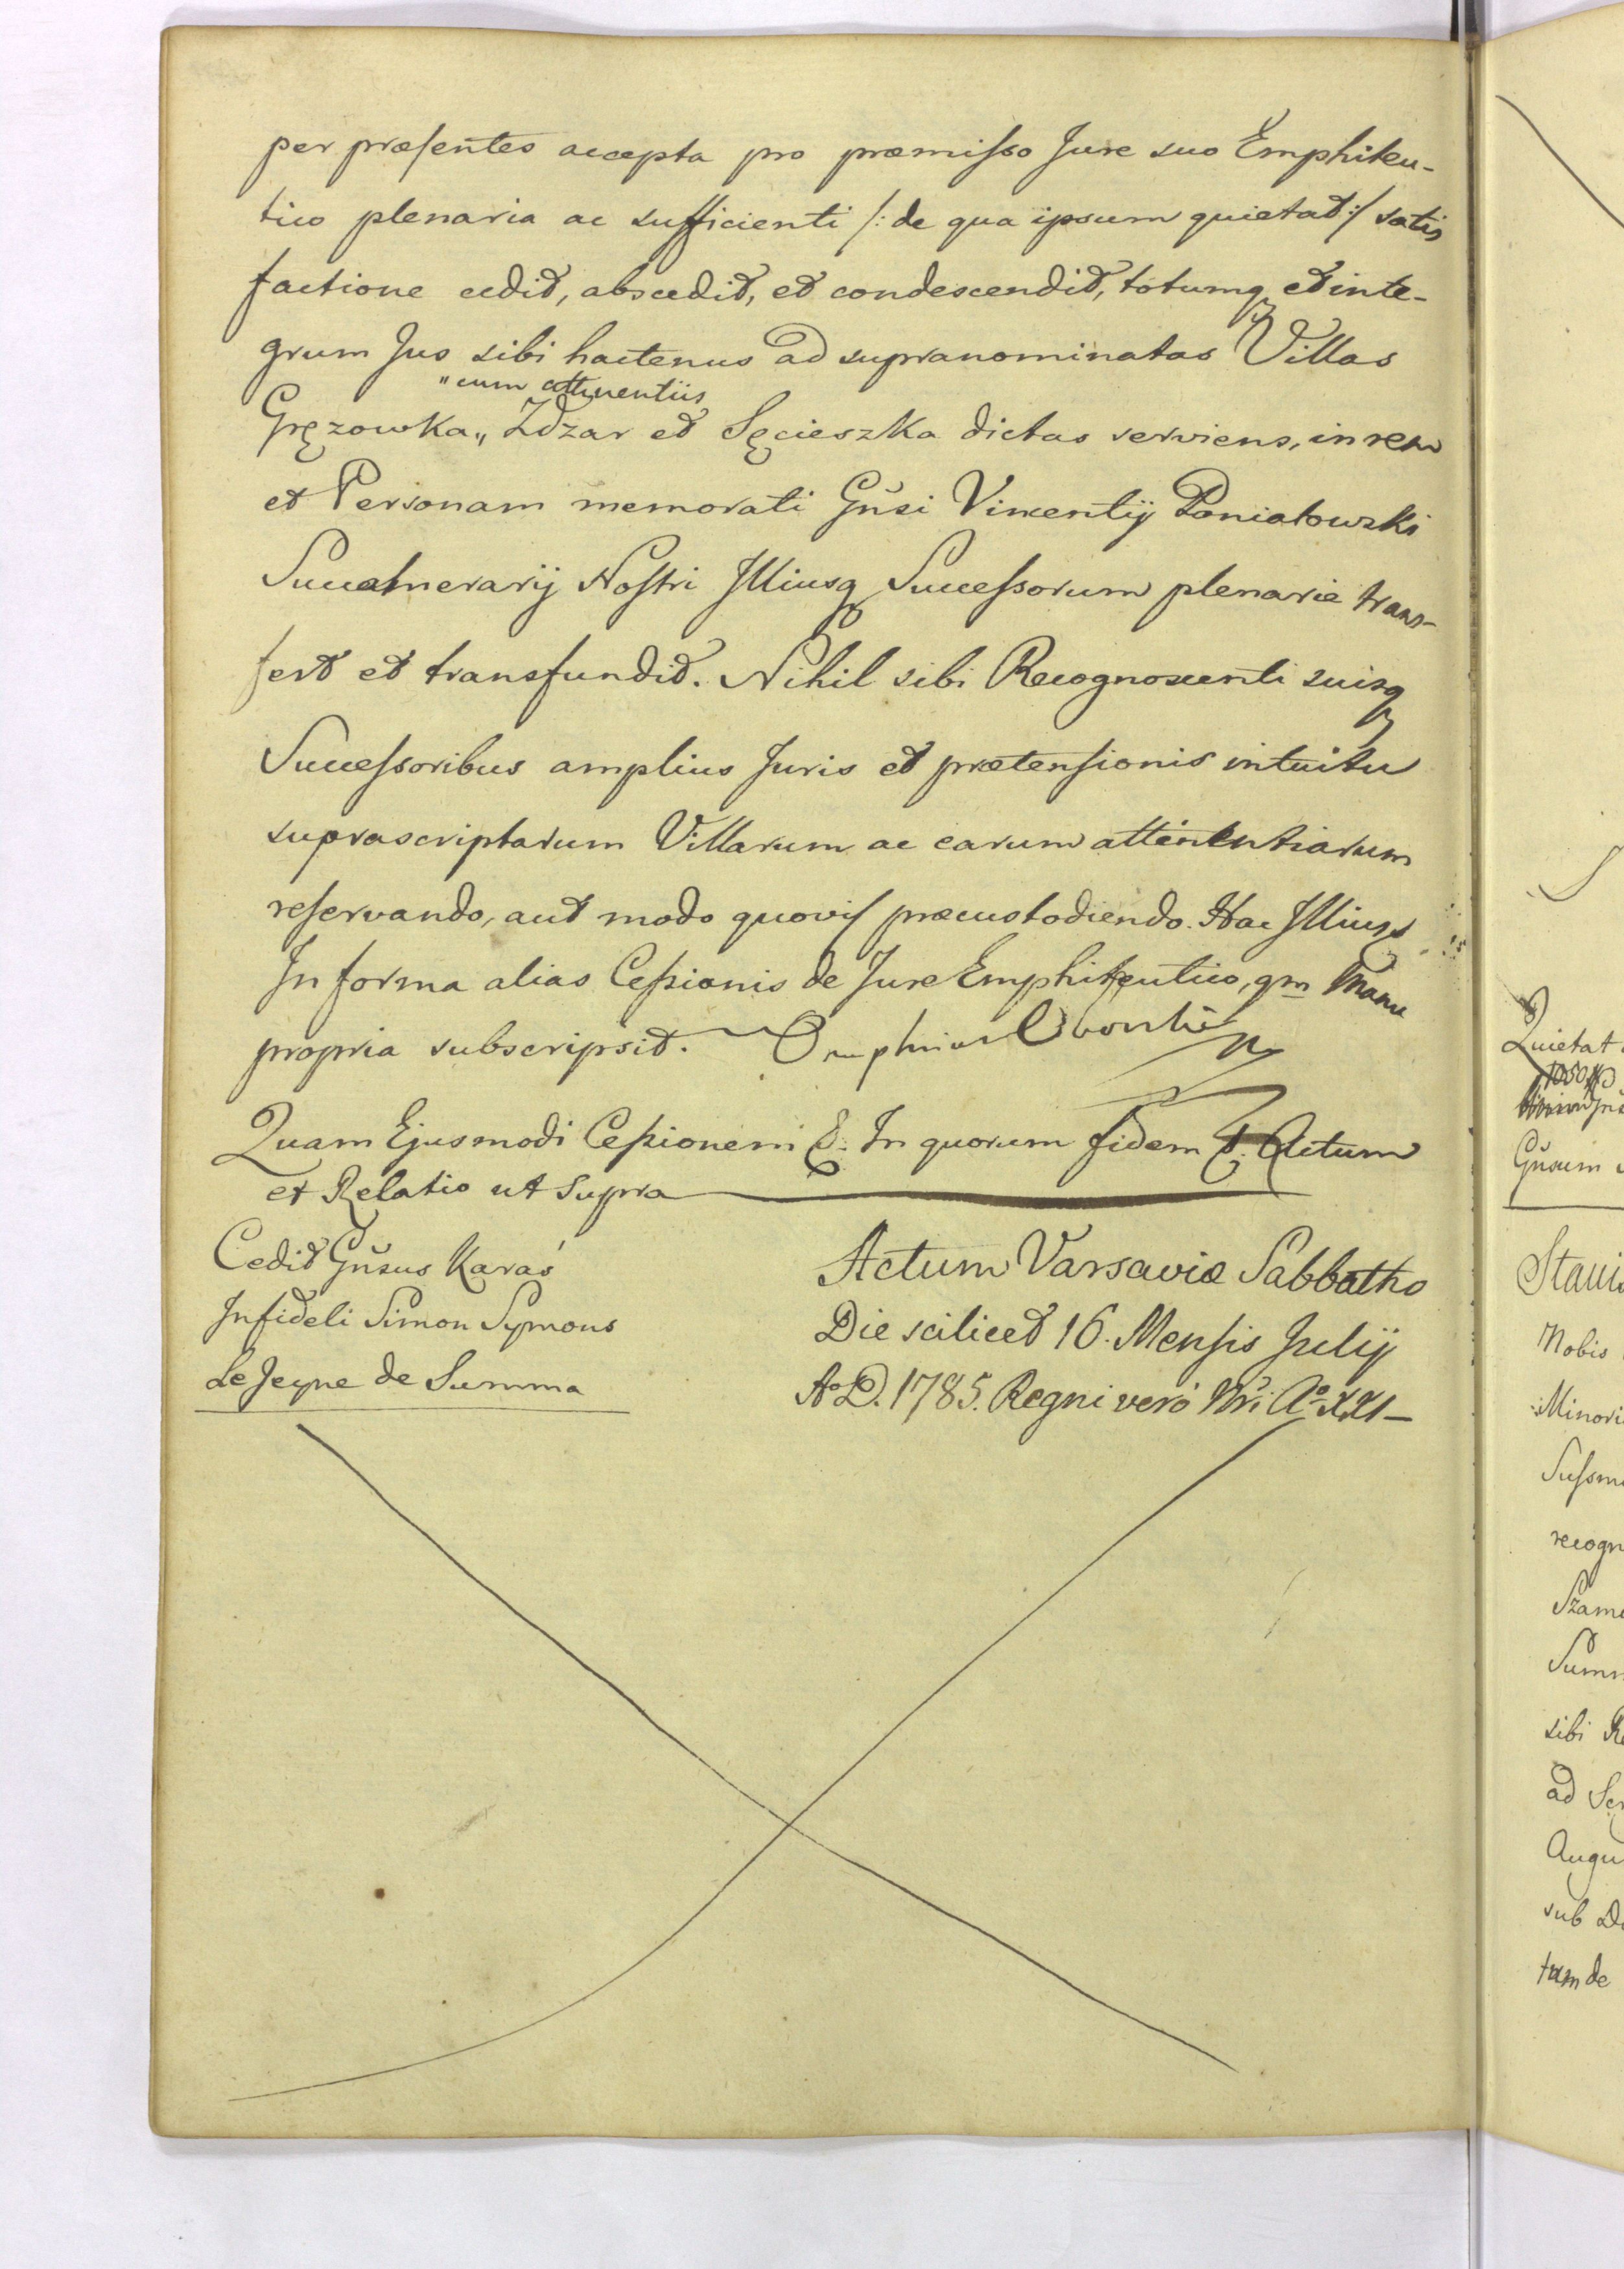 per præsentes accepta pro præmisso Jure suo Emphiteu-
tico plenaria ac sufficienti /: de qua ipsum quietat :/ satis
factione cedit, abscedit, et condescendit, totumq et inte-
grum Jus sibi hactenus ad supranominatas Villas
"cum attinentiis
Gręzowka „ Zdzar et Sęcieszka dictas serviens, in rem
et Personam memorati Gnsi Vincentij Poniatowski
Succamerarij Nostri Illiusq Successorum plenarie trans-
fert et transfundit. Nihil sibi Recognoscenti suisq
Successoribus amplius Juris et prætensionis intuitu
suprascriptarum Villarum ac earum attinentiarum
reservando, aut modo quovis præcustodiendo. Hac Illius
In forma alias Cessionis de Jure Emphiteutico, qm Manu
propria subscripsit.
Quam Ejusmodi Cessionem &. In quorum fidem &. Actum
et Relatio ut Supra
Cedit Gnsus Karaś
Infideli Simon Symons
Le Jeyne de Summa
Actum Varsaviæ Sabbatho
Die scilicet 16. Mensis Julij
Ao D. 1785. Regni verò Nri Ao XXI —
Quietat
Gnsum
Stani
Nobis
Minori
recogn
sibi Re
ad Ser
Augu
sub
tum de